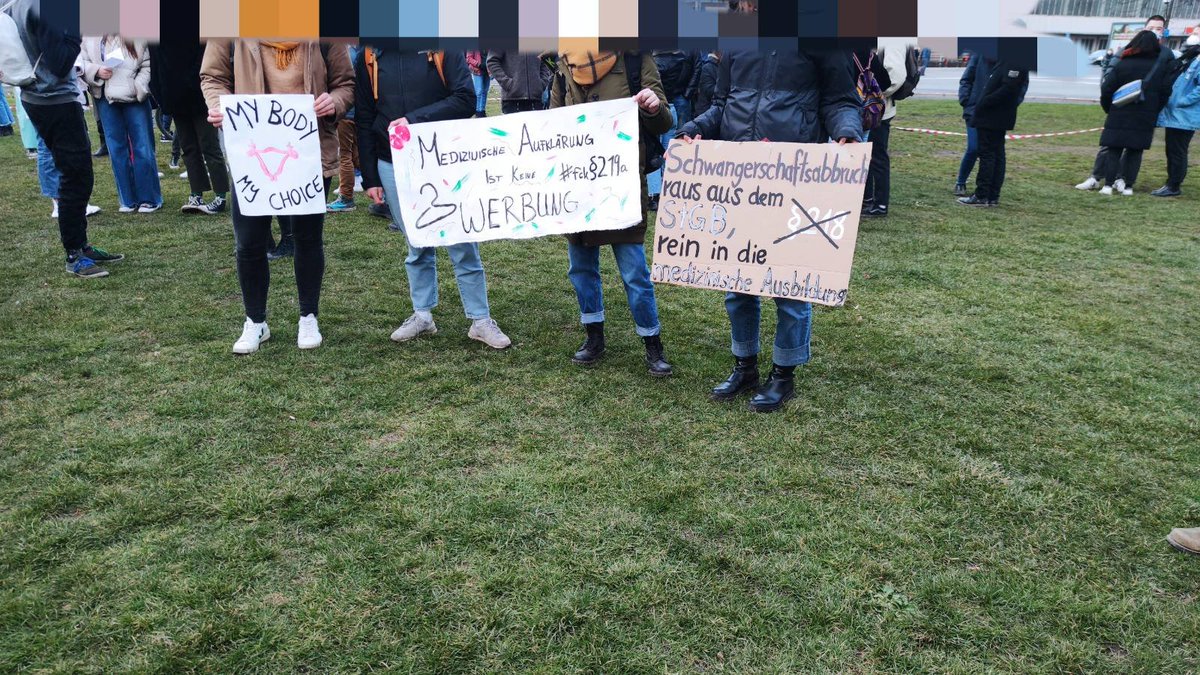 MY BODY
MY CHOICE
MEDIZINISCHE AUFKLÄRUNG
IST KEINE #fck§219a
WERBUNG
Schwangerschaftsabbruch
raus aus dem
StGB, §218
rein in die
medizinische Ausbildung